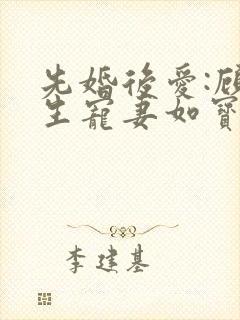 先婚後愛:顧
生寵妻如寶
李建基